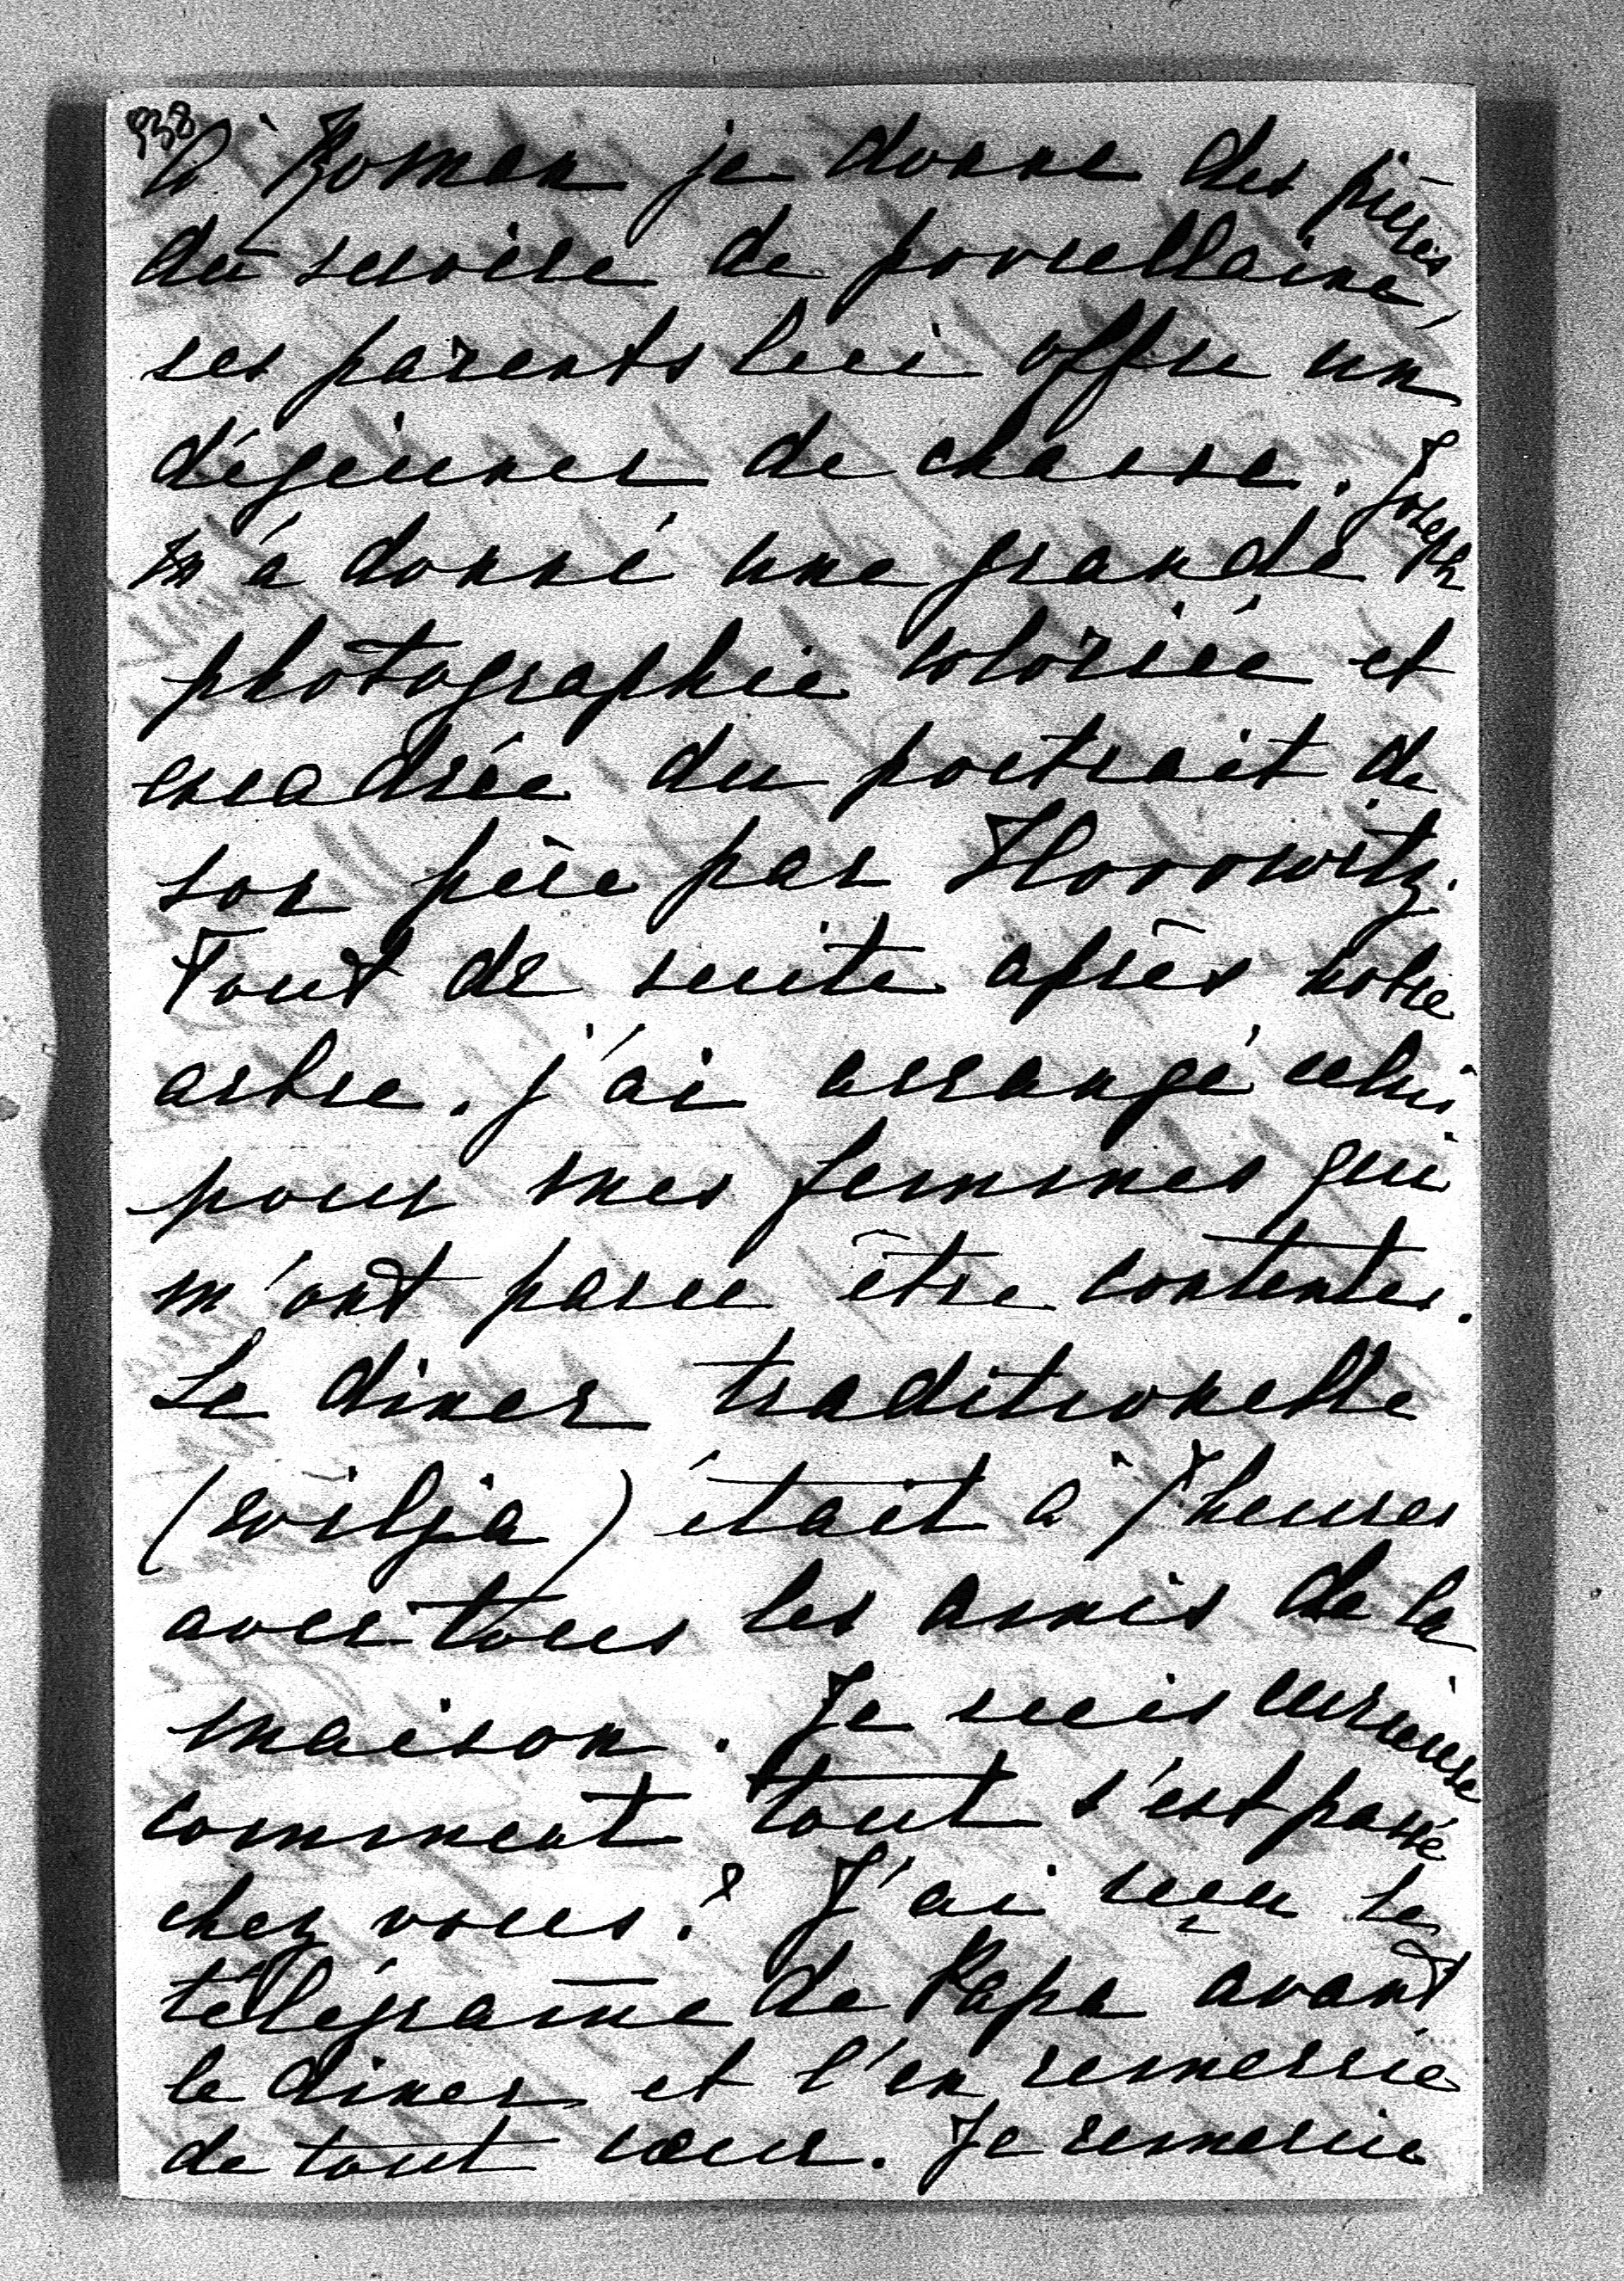 938
à Roman je donne des pièces
du service de porcellaine,
ses parents lui offre un
déjeuner de chasse. Joseph
m'a donné une grande
photographie coloriée et
encadrée du portrait de
son père par Horowitz.
Tout de suite après notre
arbre. j'ai arrangé celui
pour mes femmes qui
m'ont parue être contentes.
Le diner traditionelle
(wilja) était à 7 heures
avec tous les amis de la
maison. Je suis curieuse
comment tout s'est passé
chez vous? J'ai reçu le
télégrame de Papa avant
le diner et l'en remercie
de tout cœur. Je remercie